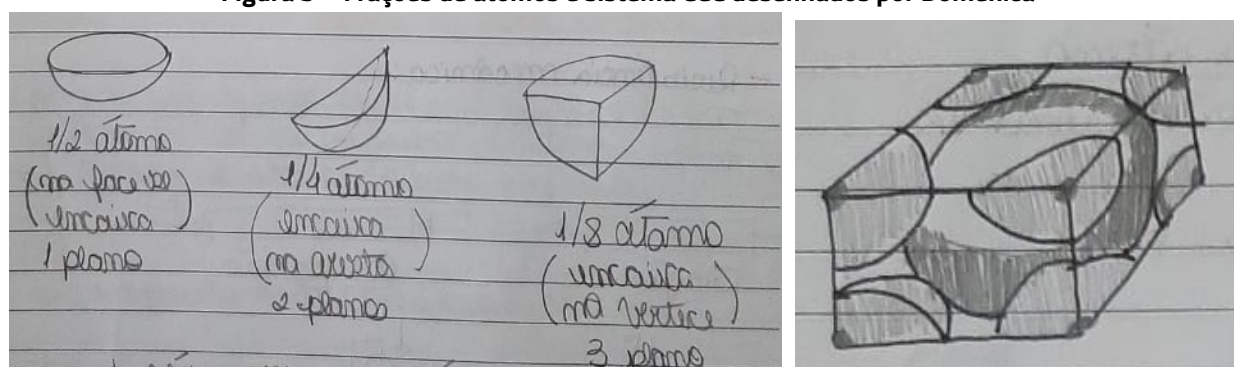 Frações de átomos e sistema desenhados por
1/2 átomo
(na face
encaixa)
1 plano
1/4 átomo
(encaixa
na aresta)
2 planos
1/8 átomo
(encaixa
na vertice)
3 plano